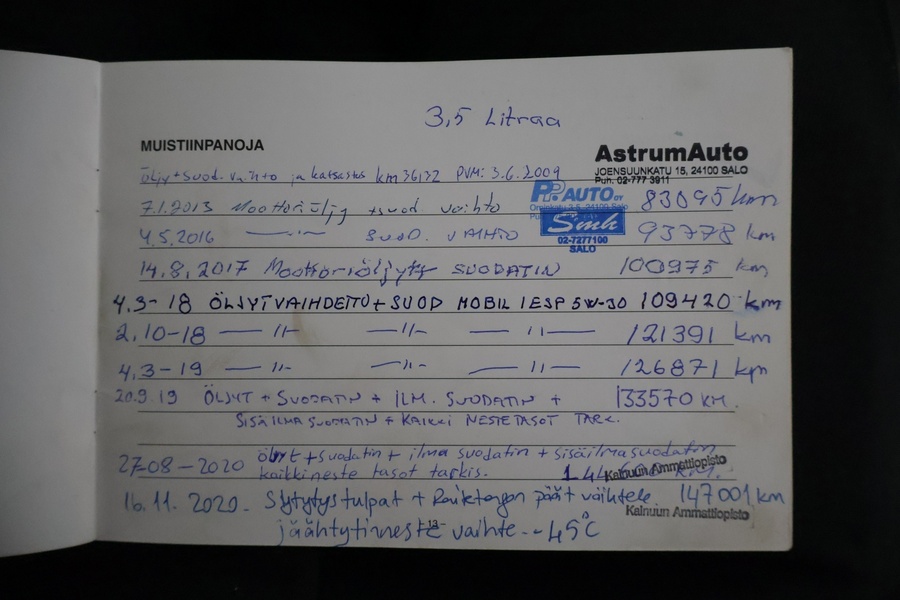 3,5 Litraa
MUISTIINPANOJA
AstrumAuto
JOENSUUNKATU 15, 24100 SALO
Puh. 02-777 3911
öljy + suod. vaihto ja katsastus km 36132 PVM: 3.6.2009
PP AUTO OY
24100 Salo
7.1.2013 Moottoriöljy + suod vaihto 83095 km
Simh
02-7277100
SALO
4.5.2016 —"— SUOD. VAIHTO 93778 km
14.8.2017 Moottoriöljyt SUODATIN 100975 km
4.3-18 ÖLJYT VAIHDETTU + SUOD MOBIL 1 ESP 5W-30 109420 km
2.10-18 —"— —"— —"— 121391 km
4.3-19 —"— —"— —"— 126871 km
20.9.19 ÖLJYT + SUODATIN + ILM. SUODATIN + 133570 KM.
SISÄILMA SUODATIN + KAIKKI NESTETASOT TARK.
27-08-2020 öljyt + suodatin + ilma suodatin + sisäilmasuodatin
kaikki neste tasot tarkis. K.M.
Kainuun Ammattiopisto
16.11.2020. Sytytystulpat + päät 147001 km
Kainuun Ammattiopisto
- 13 -
vaihto -45°C